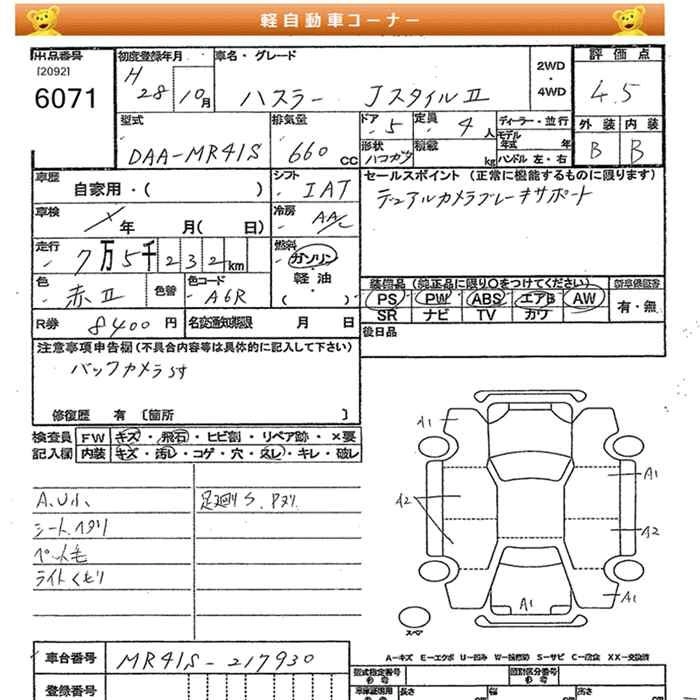 軽自動車コーナー
出品番号
[2092]
6071
初度登録年月
H 28年 10月
車名・グレード
ハスラー Jスタイル II
2WD
・
4WD
評価点
4.5
外装 内装
B B
型式
DAA-MR41S
排気量
660 CC
ドア
5
定員
4人
形状
ハコバン
積載
kg
ディーラー・並行
モデル
年式 年
ハンドル 左・右
車歴
自家用・( )
シフト
IAT
セールスポイント (正常に機能するものに限ります)
デュアルカメラブレーキサポート
車検
年 月( 日)
冷房
AAC
走行
7万5千232km
燃料
ガソリン
軽油
( )
色
赤II
色替
色コード
A6R
装備品 (純正品に限り○をつけてください)
PS PW ABS エアB AW
SR ナビ TV カワ
新車保証書
有・無
R券 8400円
名変通知期限 月 日
後日品
注意事項申告欄 (不具合内容等は具体的に記入して下さい)
バックカメラ
修復歴 有 〔箇所 〕
検査員
記入欄
FW キズ・飛石・ヒビ割・リペア跡・×要
内装 キズ・汚レ・コゲ・穴・スレ・キレ・破レ
A.U小、
シートヘタリ
ペット毛
ライトくもり
足廻りS、Pヌリ
A1
A2
A1
A2
A1
A1
スペア
A-キズ E-エクボ U-凹み W-補修跡 S-サビ C-腐食 XX-交換済
車台番号 MR41S-217930
登録番号
型式指定番号
類別区分番号
長さ cm
幅 cm
高さ cm